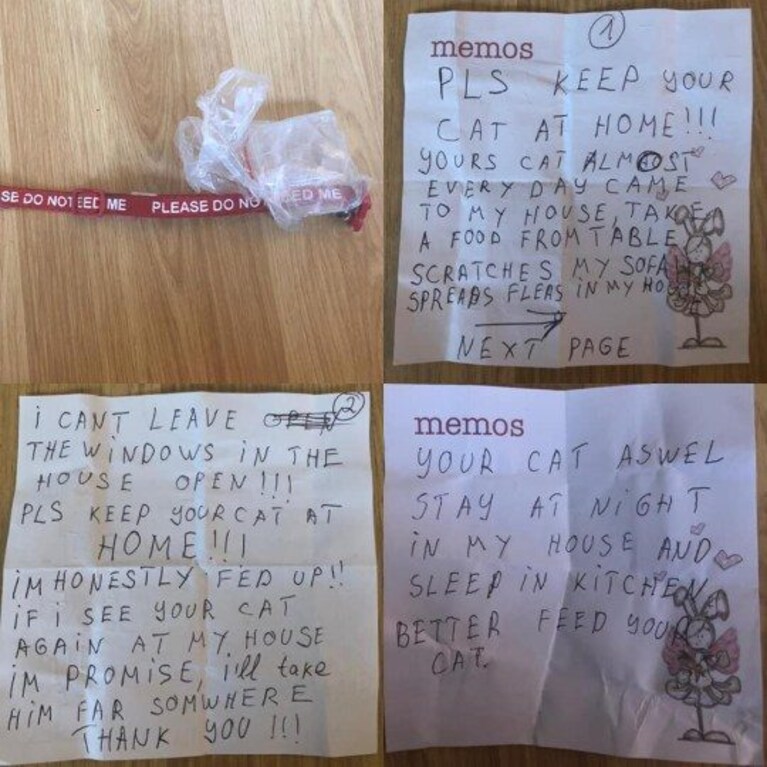 SE DO NOT EED ME PLEASE DO NO EED ME
1
memos
PLS KEEP YOUR
CAT AT HOME!!!
YOURS CAT ALMOST
EVERY DAY CAME
TO MY HOUSE, TAKE
A FOOD FROM TABLE
SCRATCHES MY SOFA
SPREADS FLEAS IN MY HO
NEXT PAGE
2
i CANT LEAVE
THE WiNDOWS iN THE
HOUSE OPEN!!!
PLS KEEP YOUR CAT AT
HOME!!!
iM HONESTLY FED UP!!
iF i SEE YOUR CAT
AGAiN AT MY HOUSE
iM PROMiSE, i'll take
HiM FAR SOMWHERE
THANK YOU !!!
memos
YOUR CAT ASWEL
STAY AT NiGHT
iN MY HOUSE AND
SLEEP iN KiTCHEN
BETTER FEED YOUR
CAT.